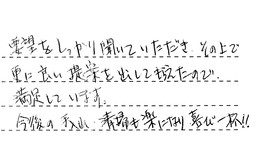 要望をしっかり聞いていただき その上で
更に良い提案を出してもらえたので、
満足しています。
今後の手入れ・清掃も楽になり喜び一杯!!